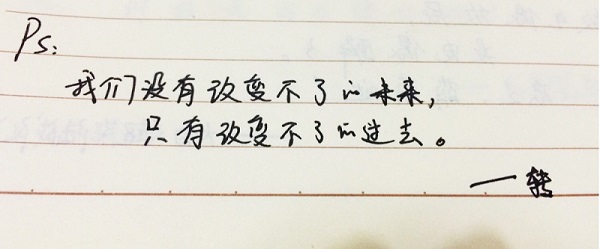 Ps:
我们没有改变不了的未来,
只有改变不了的过去。
一转